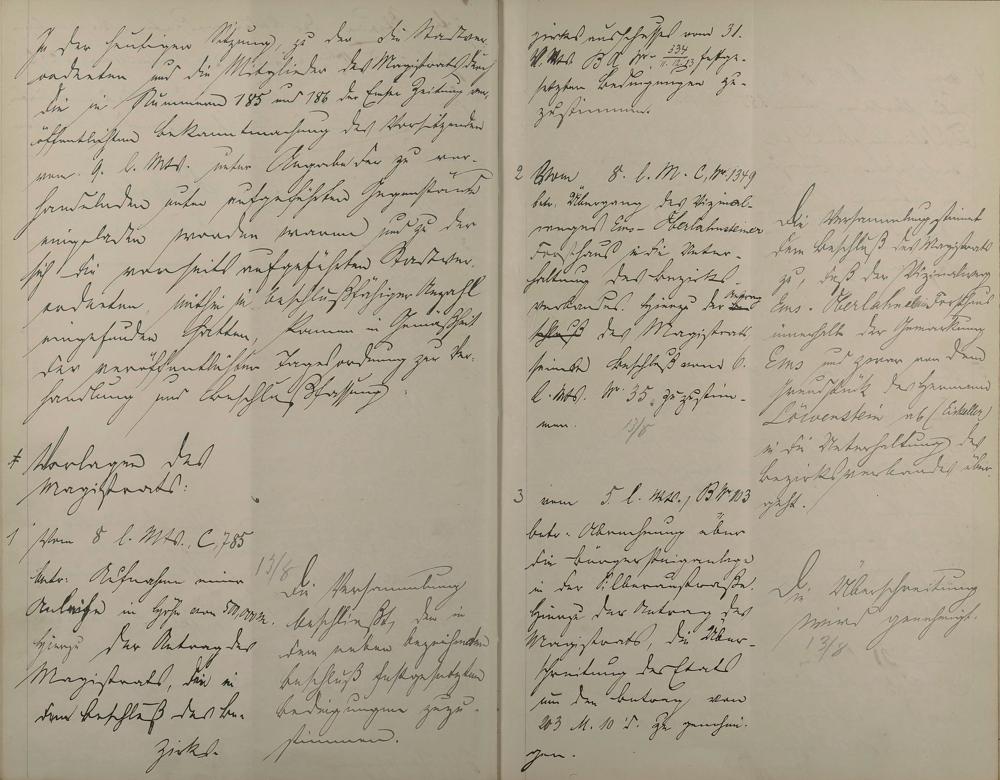 In der heutigen Sitzung, zu der die Stadtver-
ordneten und die Mitglieder des Magistrats durch
die in Nummern 185 und 186 der Emser Zeitung ver-
öffentlichten Bekanntmachung des Vorsitzenden
vom 9. l. Mts. unter Angabe der zu ver-
handelnden unten aufgeführten Gegenstände
eingeladen worden waren und zu der
sich die vorseits aufgeführten Stadtver-
ordneten, mithin in beschlußfähiger Anzahl
eingefunden hatten, kamen in Gemäßheit
der veröffentlichten Tagesordnung zur Ver-
handlung und Beschlußfassung:
Vorlagen des
Magistrats:
1 Vom 8 l. Mts., C, 785
betr: Aufnahme einer
Anleihe in Höhe von 500,000 M.
Hierzu der Antrag des
Magistrats, den in
dem Beschluß des Be-
zirks-
13/8
Die Versammlung
beschließt, den in
dem neben bezeichneten
Beschluß festgesetzten
Bedingungen zuzu-
stimmen.
zirksausschusses vom 31.
v. Mts. B A Nr. 334 festge-
setzten Bedingungen zu-
zustimmen.
2 Vom 8. l. M. C, Nr. 1349
betr. Übergang des Vizinal-
weges Ems-Oberlahnsteiner
Forsthaus in die Unter-
haltung des Bezirks
verbandes. Hierzu der Antrag
des Magistrats
seinem Beschluß vom 6.
l. Mts. Nr 35, zuzustim-
men.
13/8
Die Versammlung stimmt
dem Beschluß des Magistrats
zu, daß der Vizinalweg
Ems-Oberlahnstein Forsthaus
innerhalb der Gemarkung
Ems und zwar von dem
Grundstück des Hermann
Löwenstein ab
in die Unterhaltung des
Bezirksverbandes über-
geht.
3 vom 5 l. Mts., B Nr 103
betr. Abrechnung über
die Bürgersteiganlage
in der Silberaustraße.
Hierzu der Antrag des
Magistrats, die Über-
schreitung des Etats
um den Betrag von
203 M. 10 zu genehmi-
gen.
Die Überschreitung
wird genehmigt.
13/8